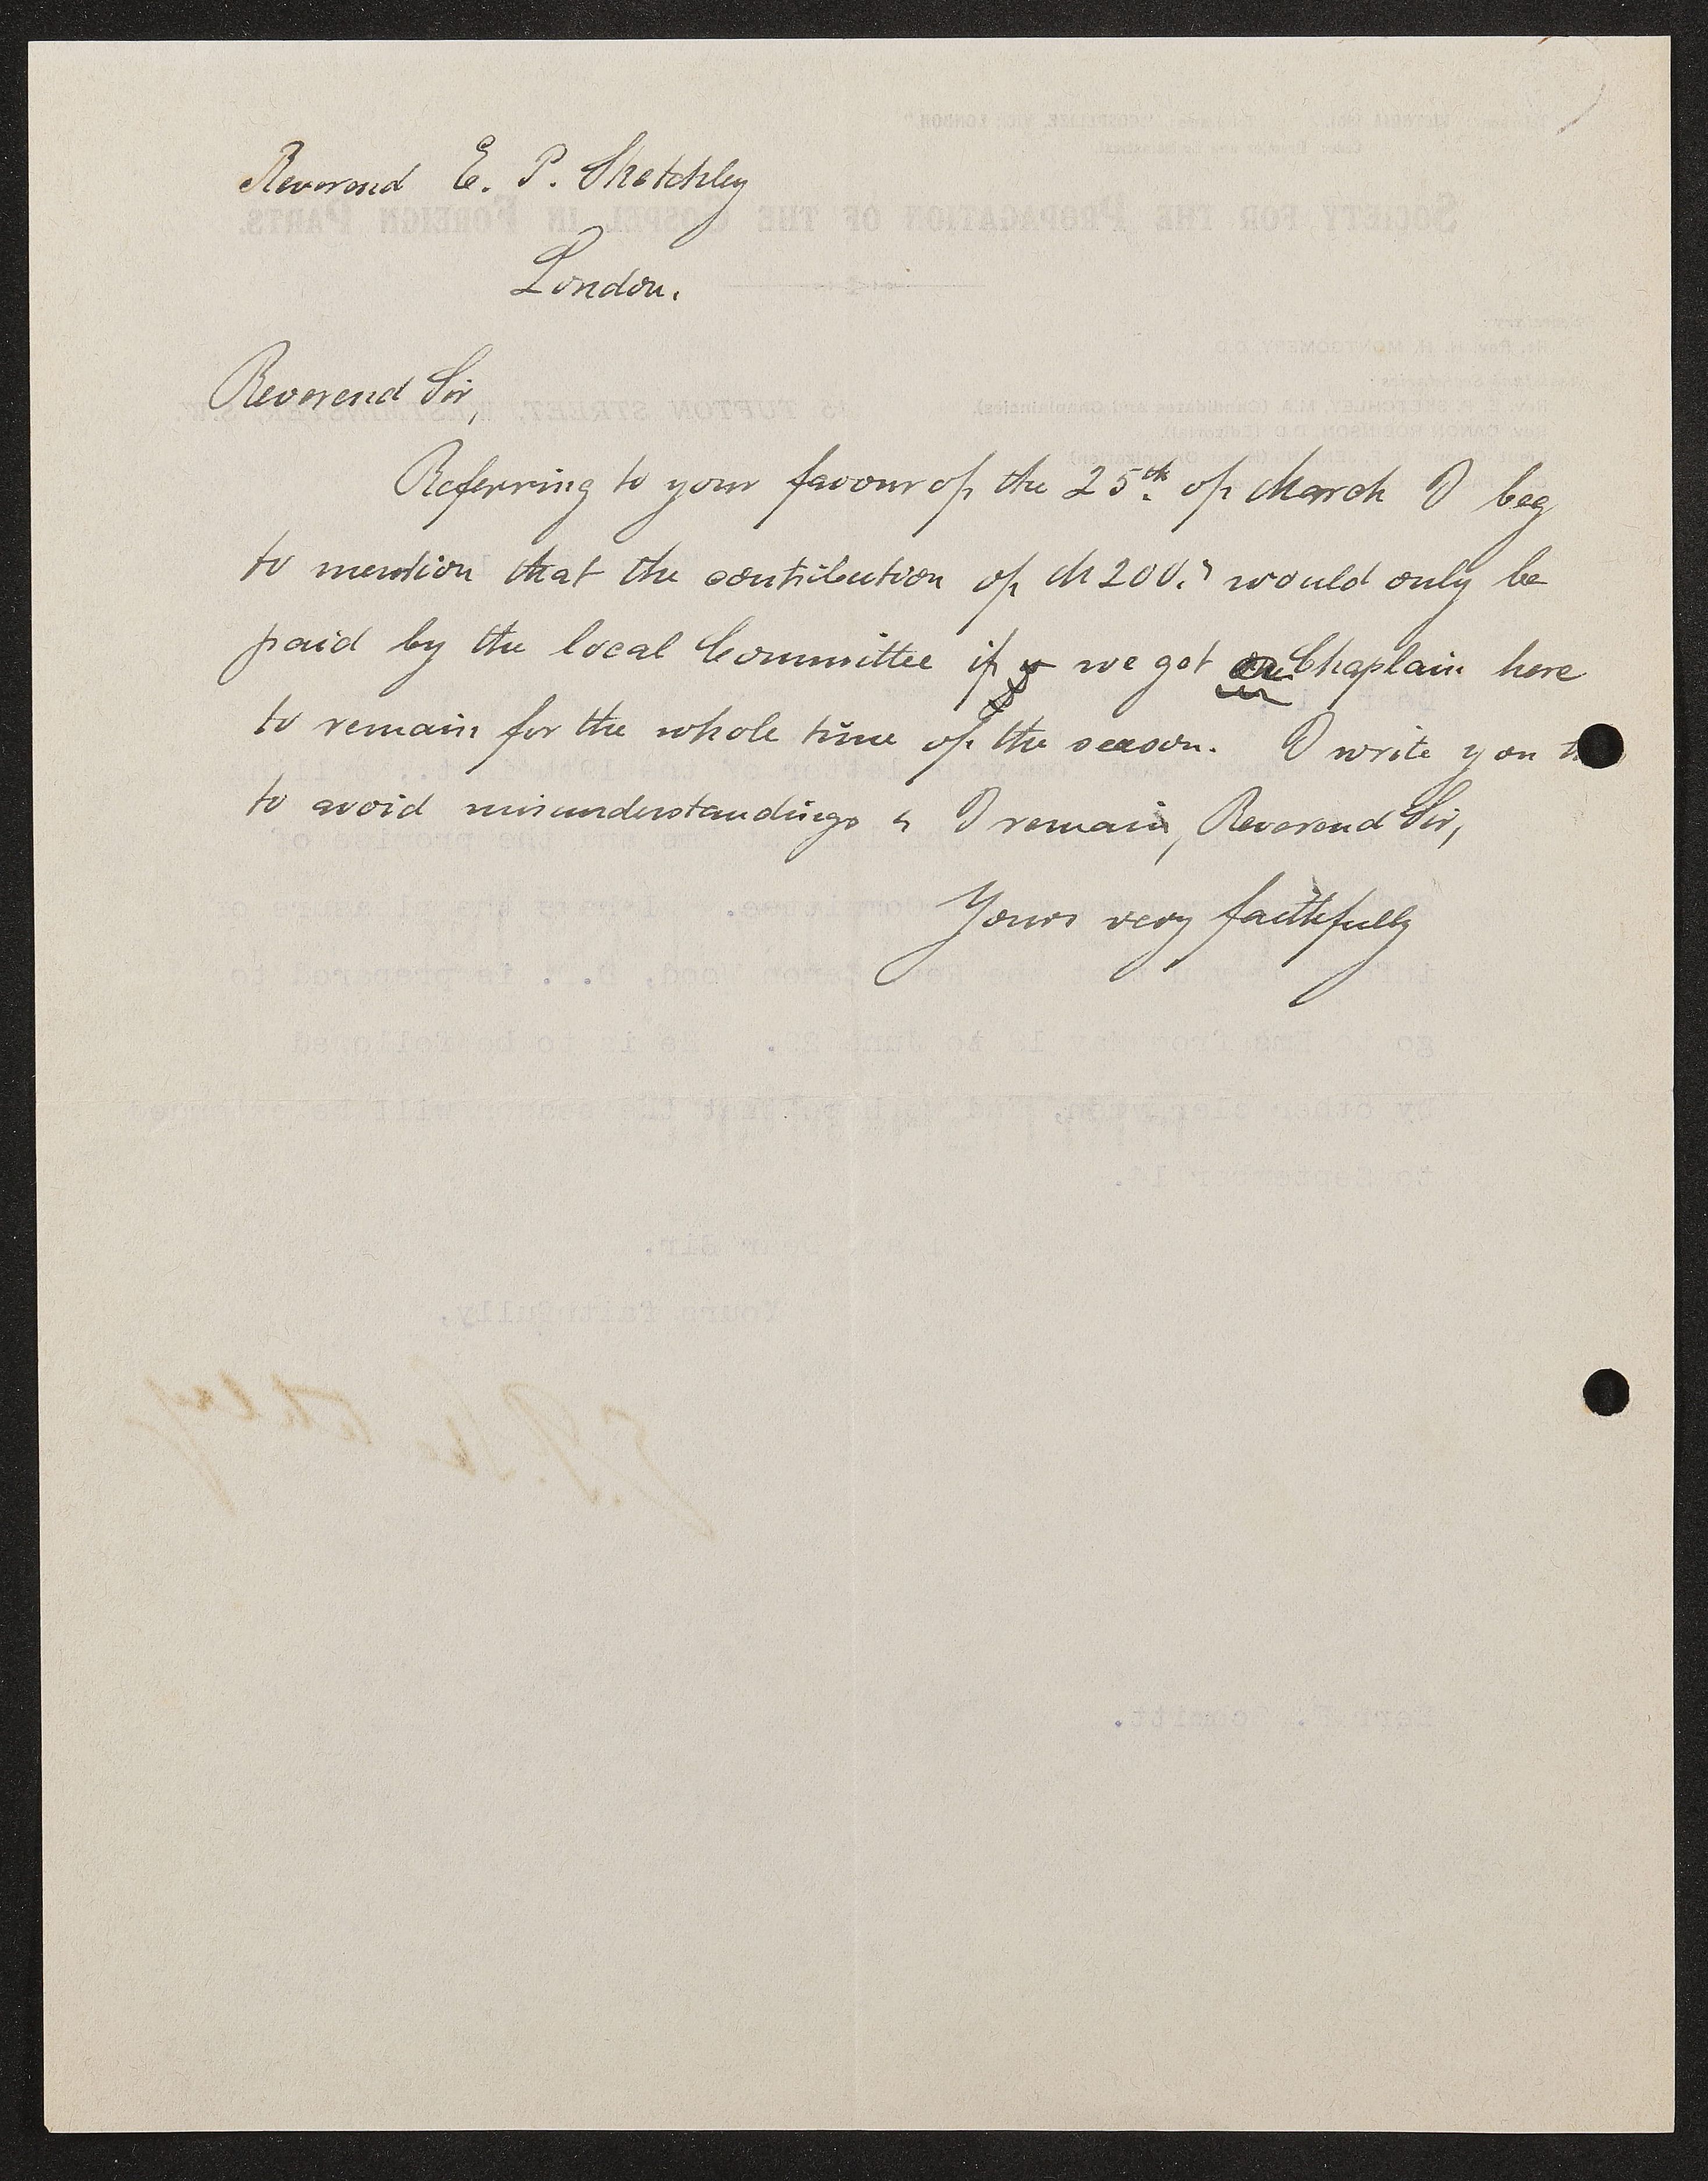 Reverend E. P. Sketchley
London.
Reverend Sir,
Referring to your favour of the 25th. of March I beg
to mention that the contribution of M 200.- would only be
paid by the local Committee if we get Chaplain here
to remain for the whole time of the season. I write you
to avoid misunderstandings & I remain, Reverend Sir,
Yours very faithfully